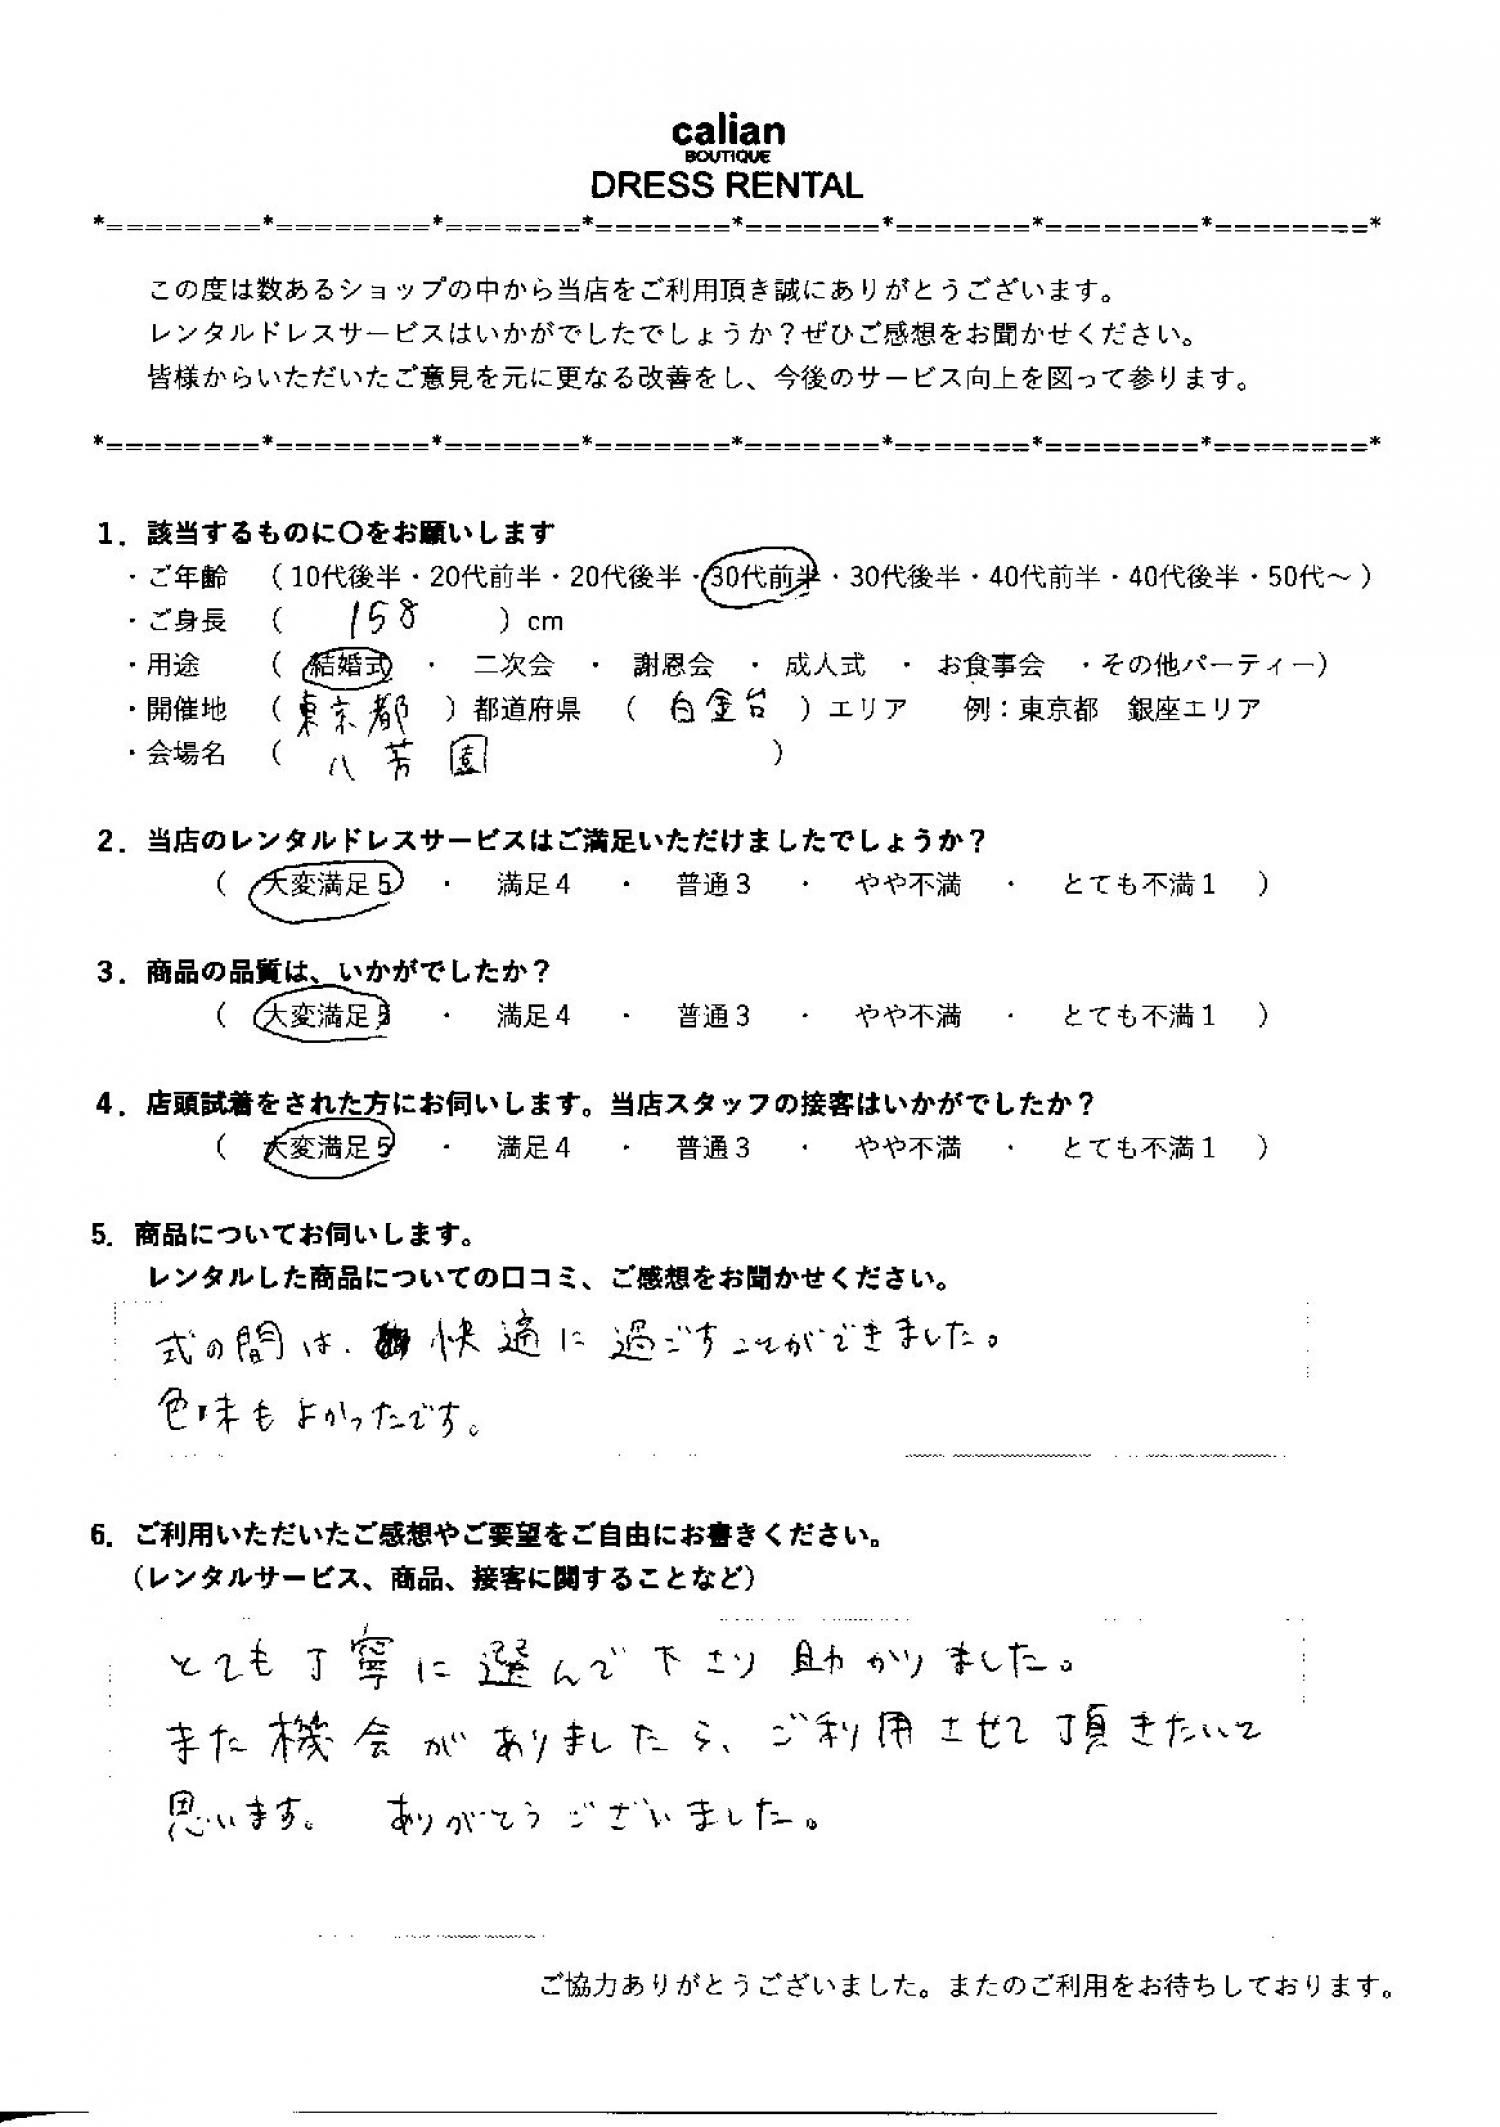 calian
BOUTIQUE
DRESS RENTAL
*========*========*=======*=======*=======*=======*========*========*
この度は数あるショップの中から当店をご利用頂き誠にありがとうございます。
レンタルドレスサービスはいかがでしたでしょうか？ぜひご感想をお聞かせください。
皆様からいただいたご意見を元に更なる改善をし、今後のサービス向上を図って参ります。
*========*========*=======*=======*=======*=======*========*========*
1．該当するものに〇をお願いします
・ご年齢　（10代後半・20代前半・20代後半・30代前半・30代後半・40代前半・40代後半・50代～）
・ご身長　（　158　）cm
・用途　（　結婚式　・　二次会　・　謝恩会　・　成人式　・　お食事会　・その他パーティー）
・開催地　（東京都　）都道府県　（　白金台　）エリア　例：東京都　銀座エリア
・会場名　（　八芳園　）
2．当店のレンタルドレスサービスはご満足いただけましたでしょうか？
（　大変満足5　・　満足4　・　普通3　・　やや不満　・　とても不満1　）
3．商品の品質は、いかがでしたか？
（　大変満足5　・　満足4　・　普通3　・　やや不満　・　とても不満1　）
4．店頭試着をされた方にお伺いします。当店スタッフの接客はいかがでしたか？
（　大変満足5　・　満足4　・　普通3　・　やや不満　・　とても不満1　）
5．商品についてお伺いします。
レンタルした商品についての口コミ、ご感想をお聞かせください。
式の間は、快適に過ごすことができました。
色味もよかったです。
6．ご利用いただいたご感想やご要望をご自由にお書きください。
（レンタルサービス、商品、接客に関することなど）
とても丁寧に選んで下さり助かりました。
また機会がありましたら、ご利用させて頂きたいと
思います。　ありがとうございました。
ご協力ありがとうございました。またのご利用をお待ちしております。